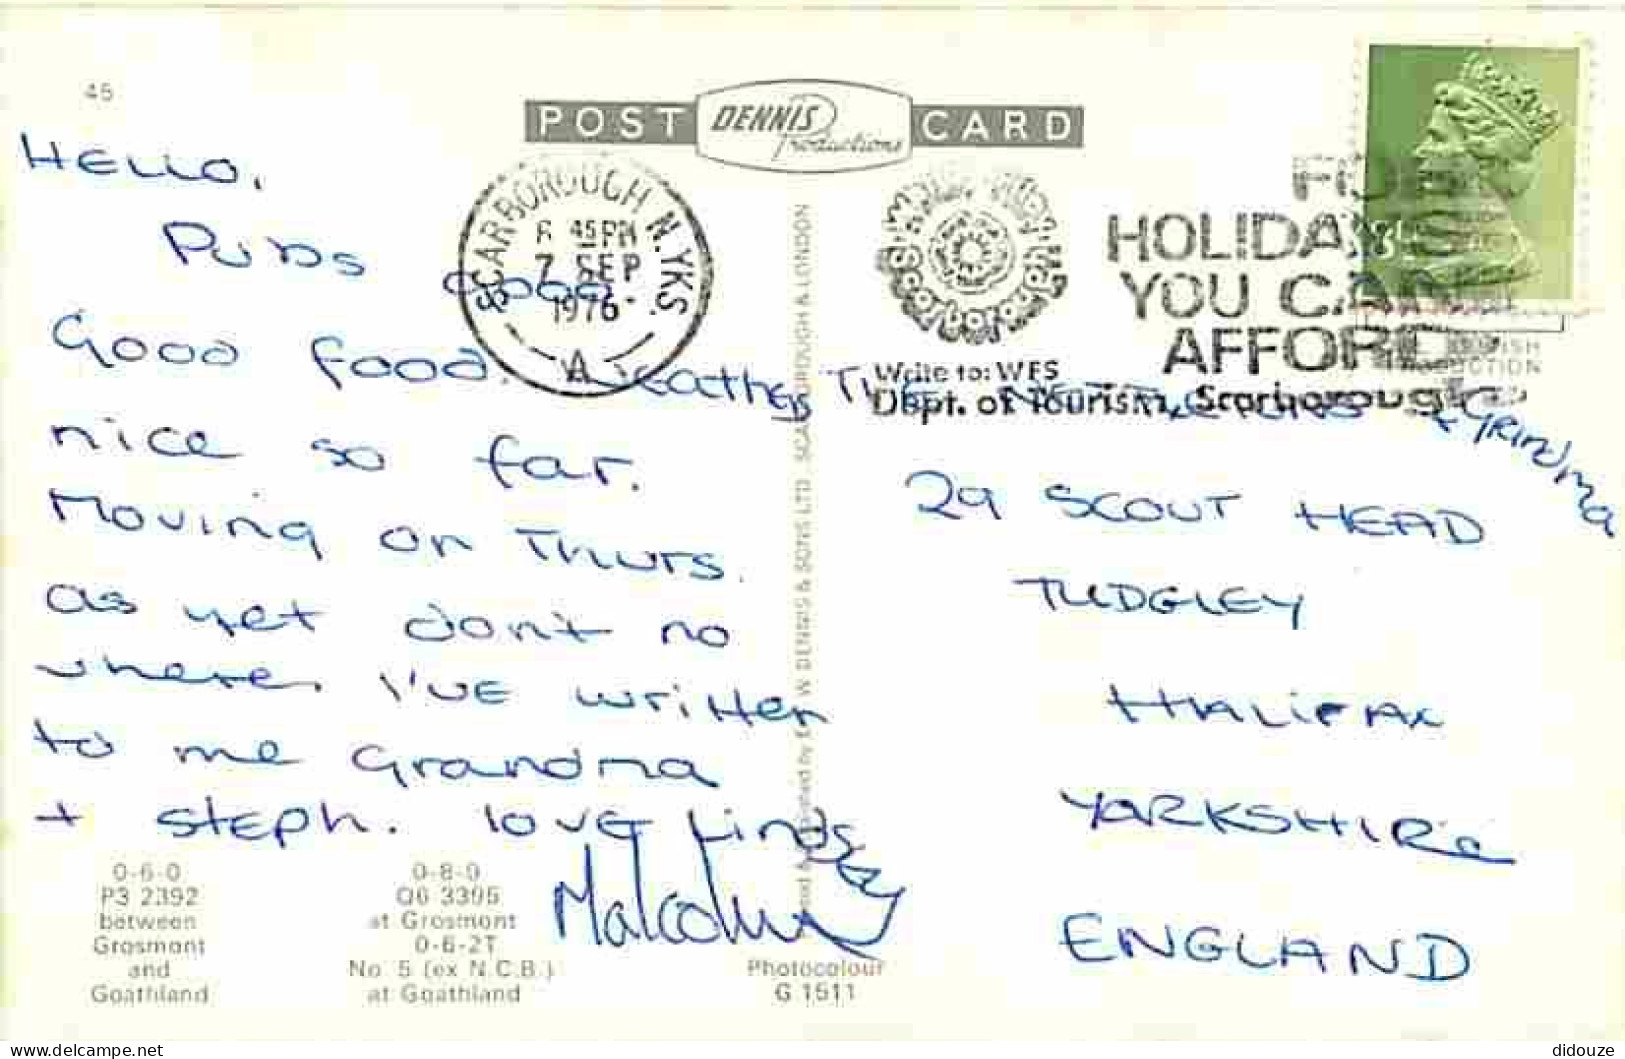 45
POST DENNIS Productions CARD
HELLO.
Pubs good.
Good food. Weather
nice so far.
Moving on Thurs.
as yet dont no
where. I'VE written
to me Grandma
+ steph. love Lindsey
Malcolm
SCARBOROUGH N.YKS.
45PM
7 SEP
1976
A
Write to: WFS
Dept. of Tourism, Scarborough
FOR
HOLIDAYS
YOU CAN
AFFORD
THE
& Grandma
29 SCOUT HEAD
HALIFAX
YORKSHIRE
ENGLAND
E. W. DENNIS & SONS LTD., SCARBOROUGH & LONDON
0-6-0
P3 2392
between
Grosmont
and
Goathland
0-8-0
Q6 3395
at Grosmont
0-6-2T
No. 5 (ex N.C.B.)
at Goathland
Photocolour
G 1511
https://www.delcampe.net
didouze